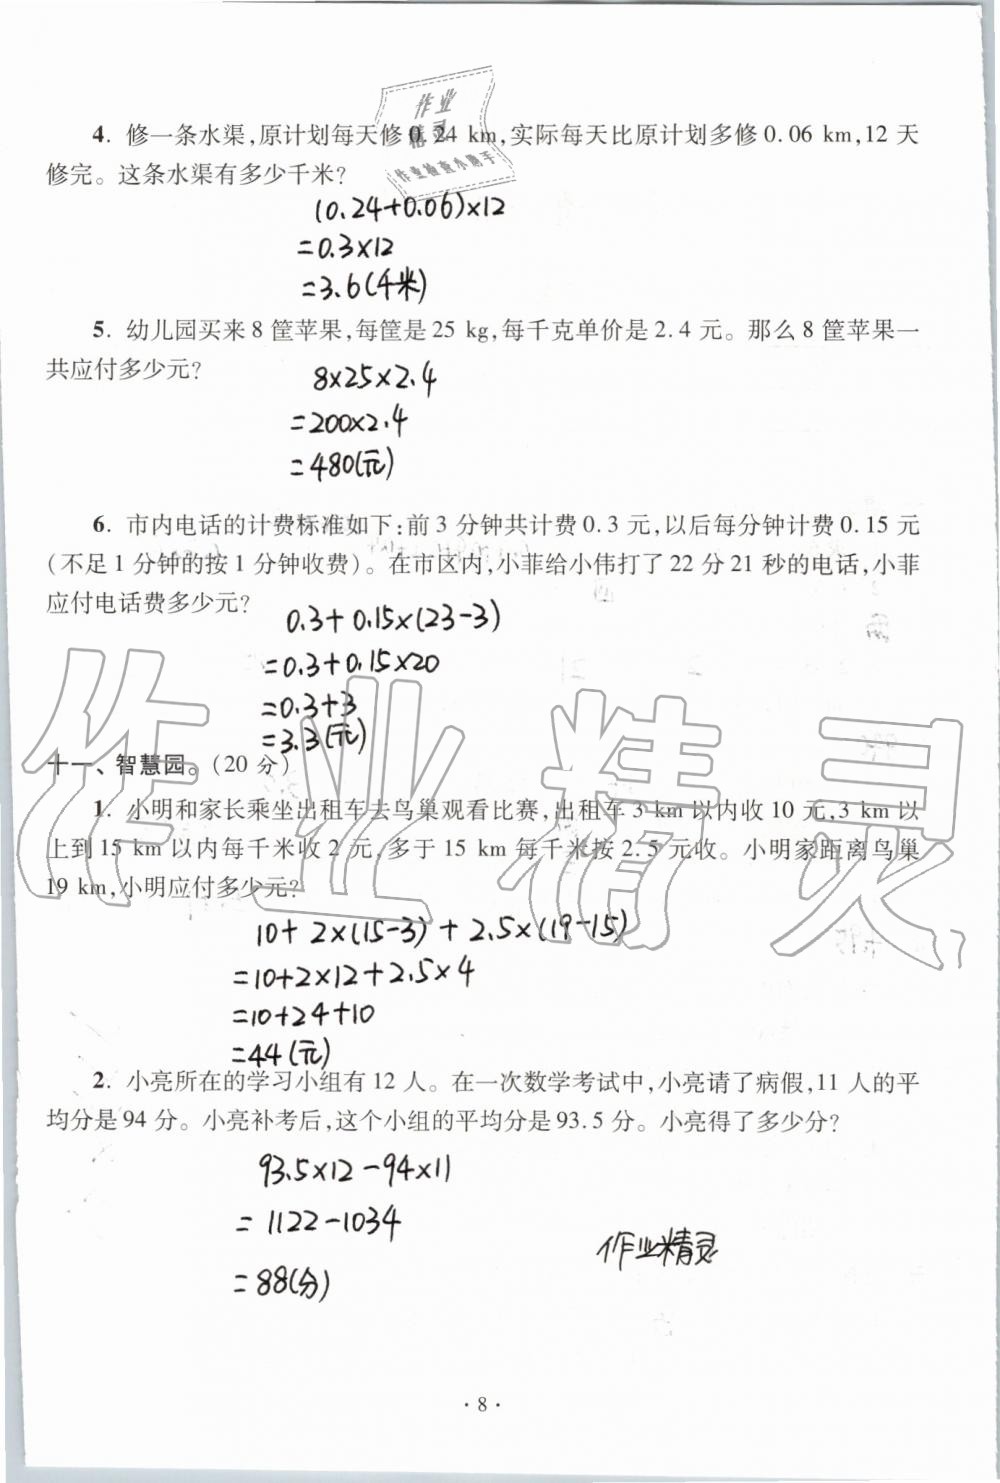 作业
精灵
作业检查小助手
4. 修一条水渠,原计划每天修0.24 km,实际每天比原计划多修0.06 km,12天
修完。这条水渠有多少千米?
(0.24+0.06)×12
=0.3×12
=3.6(千米)
5. 幼儿园买来8筐苹果,每筐是25 kg,每千克单价是2.4元。那么8筐苹果一
共应付多少元?
8×25×2.4
=200×2.4
=480(元)
6. 市内电话的计费标准如下:前3分钟共计费0.3元,以后每分钟计费0.15元
(不足1分钟的按1分钟收费)。在市区内,小菲给小伟打了22分21秒的电话,小菲
应付电话费多少元?
0.3+0.15×(23-3)
=0.3+0.15×20
=0.3+3
=3.3(元)
十一、智慧园。(20分)
1. 小明和家长乘坐出租车去鸟巢观看比赛,出租车3 km以内收10元,3 km以
上到15 km以内每千米收2元,多于15 km每千米按2.5元收。小明家距离鸟巢
19 km,小明应付多少元?
10+2×(15-3)+2.5×(19-15)
=10+2×12+2.5×4
=10+24+10
=44(元)
2. 小亮所在的学习小组有12人。在一次数学考试中,小亮请了病假,11人的平
均分是94分。小亮补考后,这个小组的平均分是93.5分。小亮得了多少分?
93.5×12-94×11
=1122-1034
=88(分)
作业精灵
作业精灵
·8·